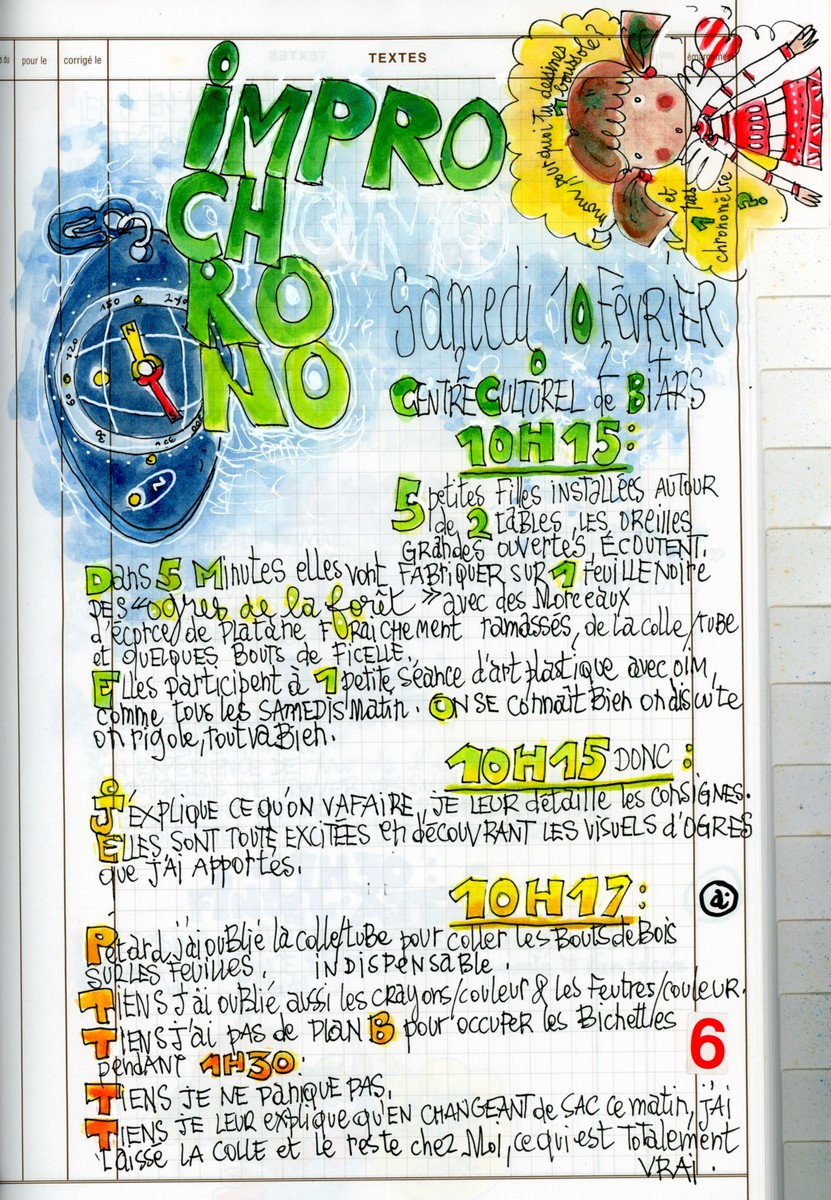 s du
pour le
corrigé le
TEXTES
émargement
mam, pourquoi tu dessines
1 boussole?
et
1 pas
chronomètre
?
iMPRO
CH
RO
NO
Samedi 10 FÉVRiER
2024
CENTRE CULTUREL de BiARS
10H15:
5 petites Filles iNSTALLÉES AUTOUR
de 2 tables, LES OREILLES
GRANDES OUVERTES, ÉCOUTENT.
Dans 5 Minutes elles vont FABRIQUER SUR 1 FEUiLLE NOiRE
DES "ogres de la forêt" avec des Morceaux
d'écorce de platane FRAiCHEMENT ramassés, de la colle/tube
et QUELQUES BOUTS de FiCELLE.
Elles participent à 1 petite séance d'art plastique avec oim,
comme tous les SAMEDIS Matin. ON SE connaît Bien on discute
on rigole, tout va Bien.
10H15 DONC :
J'EXPLiQUE CE QU'ON VA FAiRE, JE LEUR détaille les consiGNES.
ELLES SONT TOUTE EXCiTÉES en découVRANT LES ViSUELS d'OGRES
que j'Ai Apportés.
10H17:
Pétard j'ai ouBlié la colle/tube pour coller les Bouts de Bois
SUR LES FEUiLLES. iNDiSPENSABLE.
TIENS J'ai ouBLié aussi les crayons/couleur & les Feutres/couleur.
TIENS J'ai pas de PLAN B pour occuper les Bichettes
pendANT 1H30.
TIENS JE NE panique PAS.
TIENS JE LEUR explique qu'EN CHANGEANT de SAC ce matin, j'Ai
Laissé LA COLLE et le reste chez Moi, ce qui est Totalement
VRAi.
6